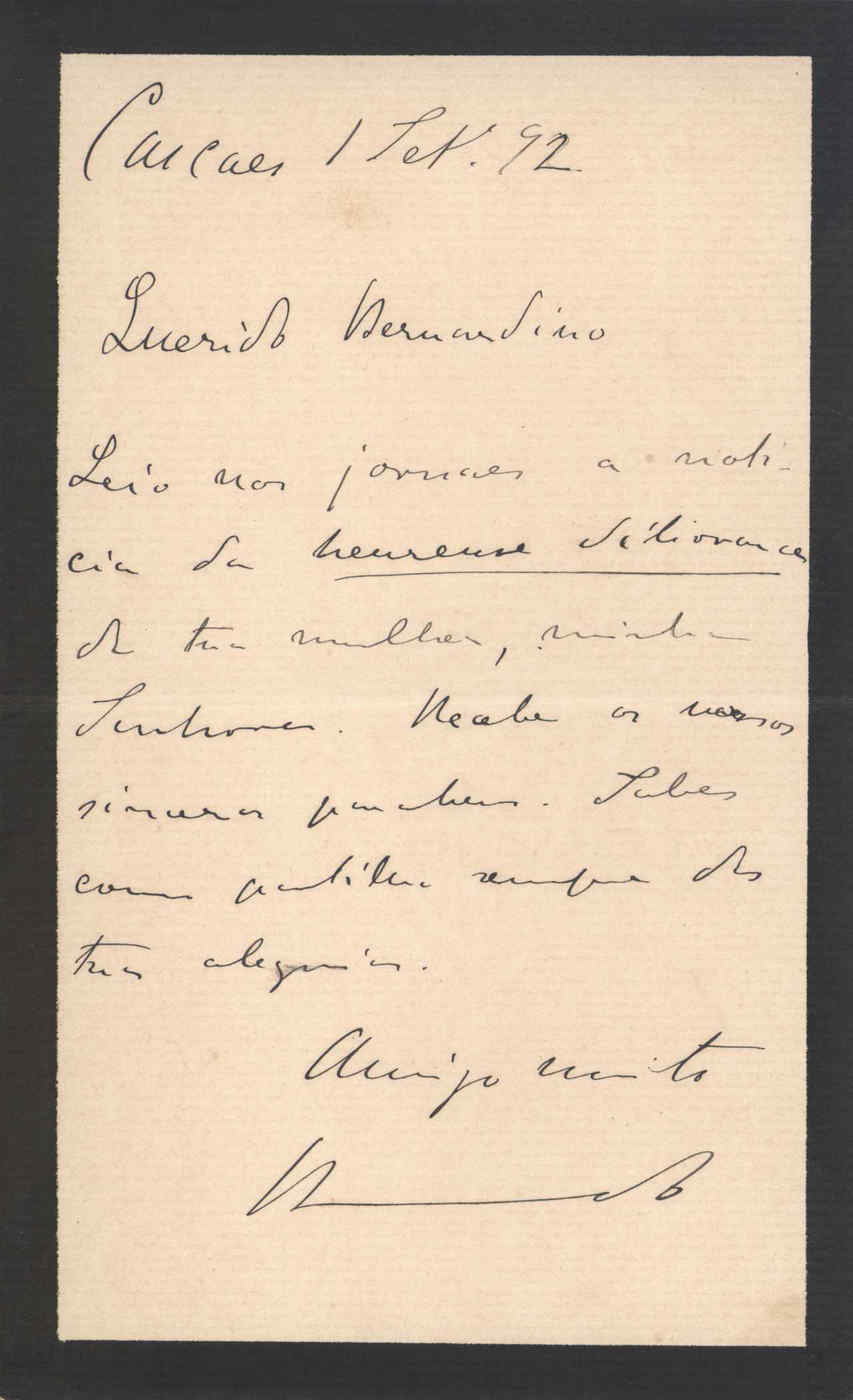 Cascaes 1 Set. 92
Querido Bernardino
Leio nos jornaes a noti-
cia da heureuse délivrance
de tua mulher, minha
Senhora. Recebe os nossos
sinceros parabens. Sabes
como partilho sempre das
tuas alegrias.
Amigo muito